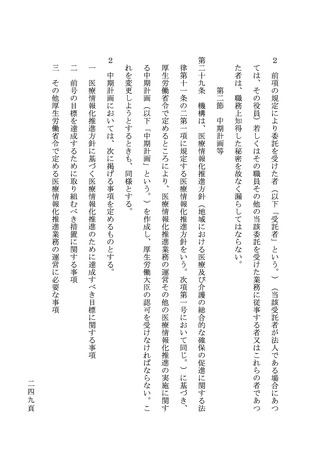 ２　前項の規定により委託を受けた者（以下「受託者」という。）（当該受託者が法人である場合にあつ
ては、その役員）若しくはその職員その他の当該委託を受けた業務に従事する者又はこれらの者であつ
た者は、職務上知得した秘密を故なく漏らしてはならない。
第二節　中期計画等
第二十九条　機構は、医療情報化推進方針（地域における医療及び介護の総合的な確保の促進に関する法
律第十一条の二第一項に規定する医療情報化推進方針をいう。次項第一号において同じ。）に基づき、
厚生労働省令で定めるところにより、医療情報化推進業務の運営その他の医療情報化推進の実施に関す
る中期計画（以下「中期計画」という。）を作成し、厚生労働大臣の認可を受けなければならない。こ
れを変更しようとするときも、同様とする。
２　中期計画においては、次に掲げる事項を定めるものとする。
一　医療情報化推進方針に基づく医療情報化推進のために達成すべき目標に関する事項
二　前号の目標を達成するために取り組むべき措置に関する事項
三　その他厚生労働省令で定める医療情報化推進業務の運営に必要な事項
二四九頁